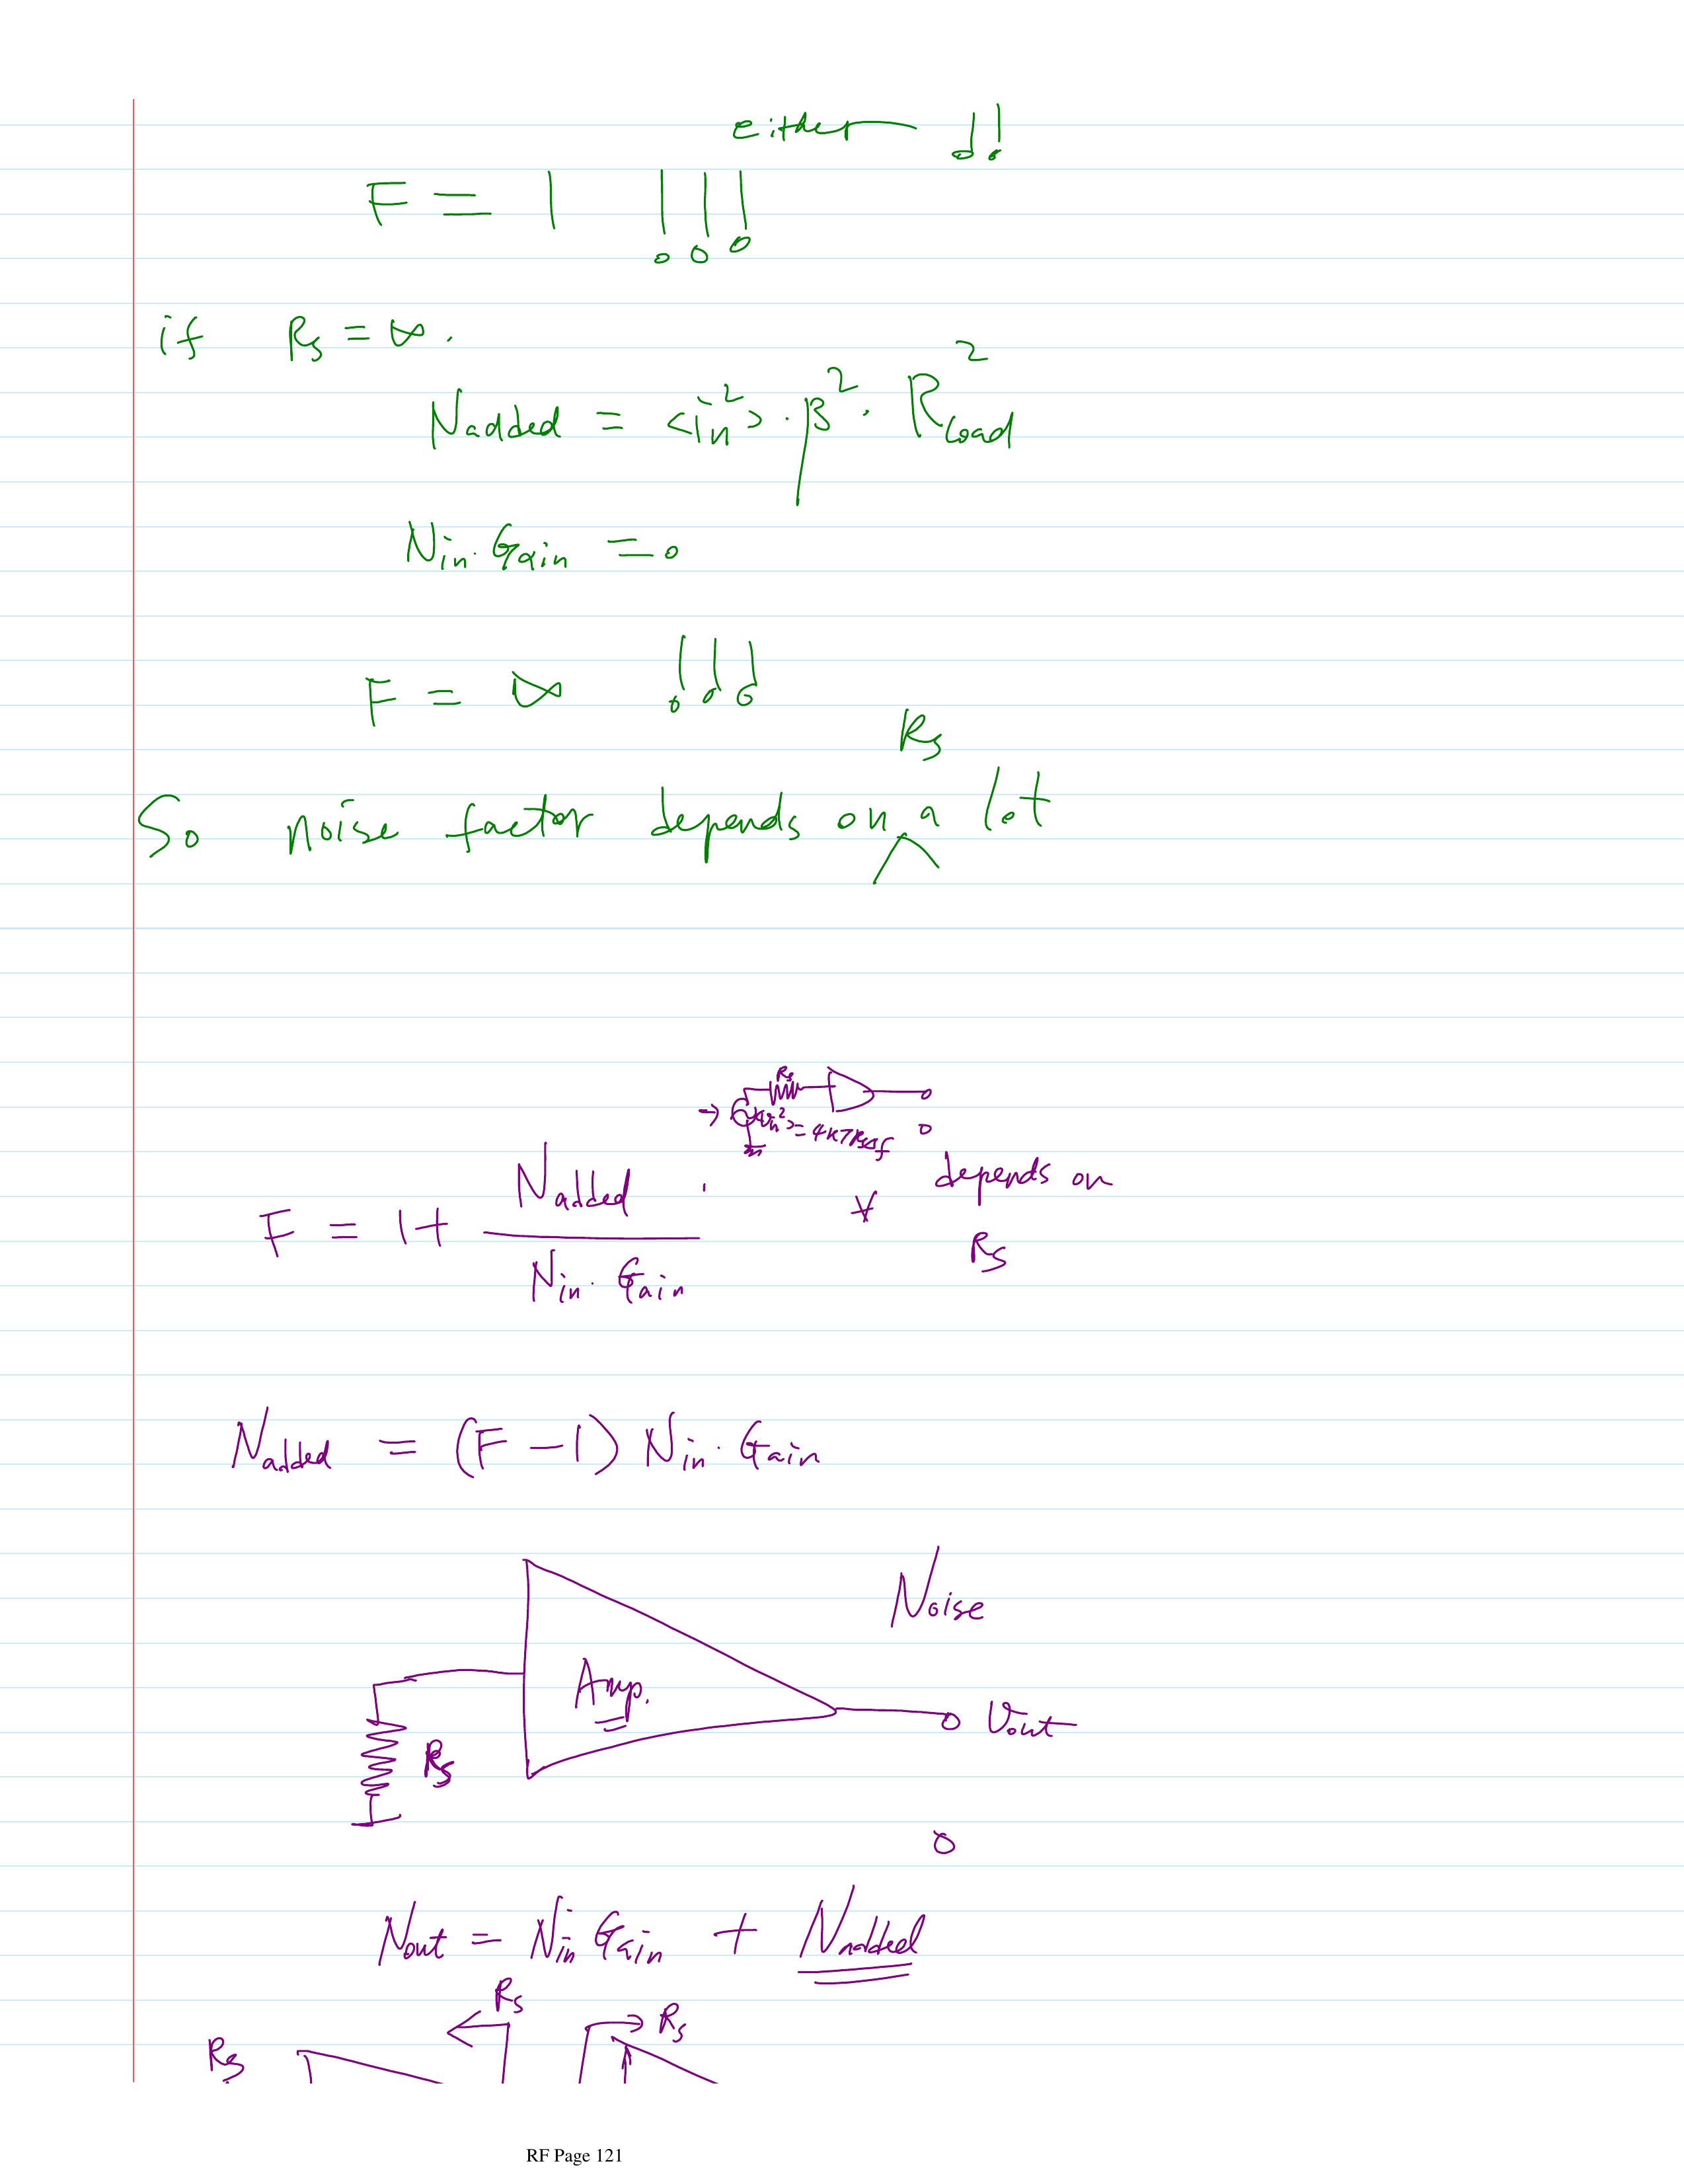 either !!
F = 1 !!!
if Rs = ∞.
Nadded = <in²> · β² · Rload²
Nin · Gain = 0
F = ∞ !!!
So noise factor depends on Rs a lot
Rs
<vn²> = 4KTRsΔf
F = 1 + Nadded / Nin · Gain
depends on
Rs
Nadded = (F - 1) Nin · Gain
Noise
Amp.
Vout
Rs
Nout = Nin Gain + Nadded
Rs
Rs
Rs
RF Page 121